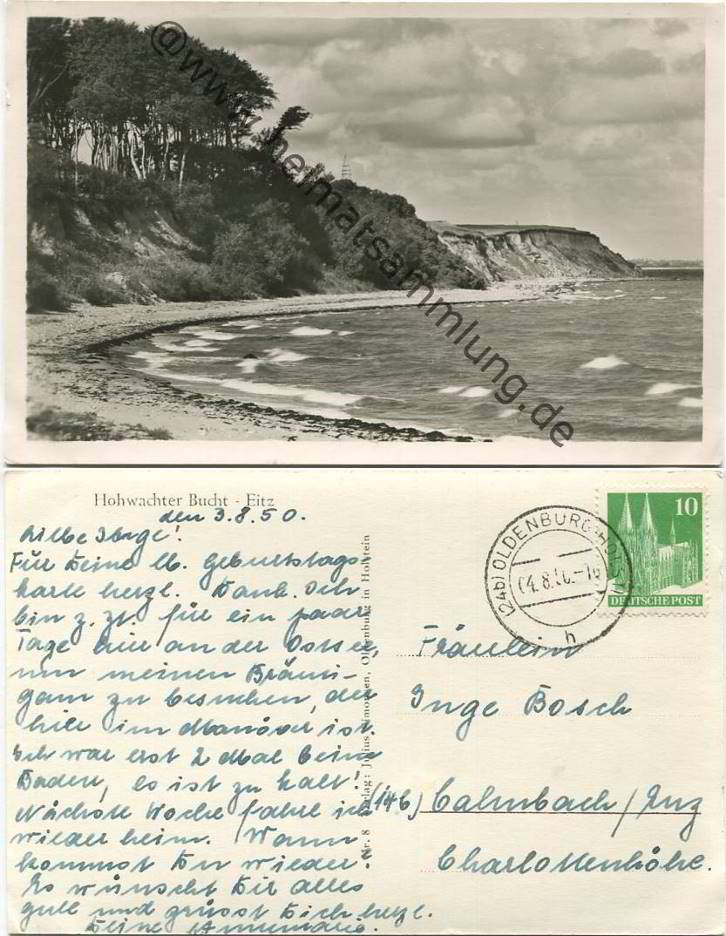 @www.heimatsammlung.de
Hohwachter Bucht - Eitz
den 3.8.50.
Liebe Inge!
Für Deine lb. Geburtstags-
karte herzl. Dank. Ich
bin z. Zt. für ein paar
Tage hier an der Ostsee,
um meinen Bräuti-
gam zu besuchen, der
hier im Manöver ist.
Ich war erst 2 Mal beim
Baden, es ist zu kalt!
Nächste Woche fahre ich
wieder heim. Wann
kommst Du wieder?
Es wünscht Dir alles
gute und grüsst Dich herzl.
Deine Annemarie.
Nr. 8 Verlag: Julius Simonsen, Oldenburg in Holstein
(24b) OLDENBURG (HOLST)
h
10
DEUTSCHE POST
Fräulein
Inge Bosch
(14b) Calmbach/Enz
Charlottenhöhe.